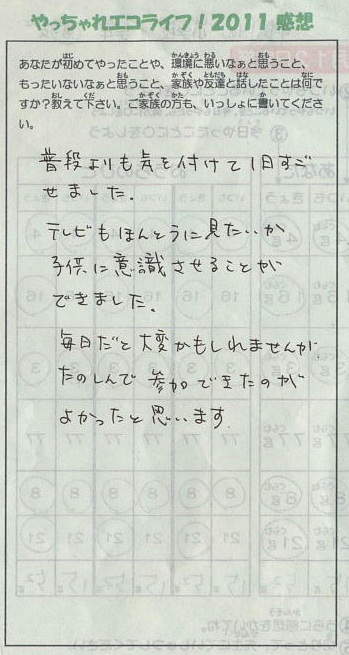 やっちゃれエコライフ！2011 感想
あなたが初めてやったことや、環境に悪いなぁと思うこと、
もったいないなぁと思うこと、家族や友達と話したことは何で
すか？教えて下さい。ご家族の方も、いっしょに書いてくださ
い。
普段よりも気を付けて1日すご
せました。
テレビもほんとうに見たいか
子供に意識させることが
できました。
毎日だと大変かもしれませんが、
たのしんで参加できたのが
よかったと思います